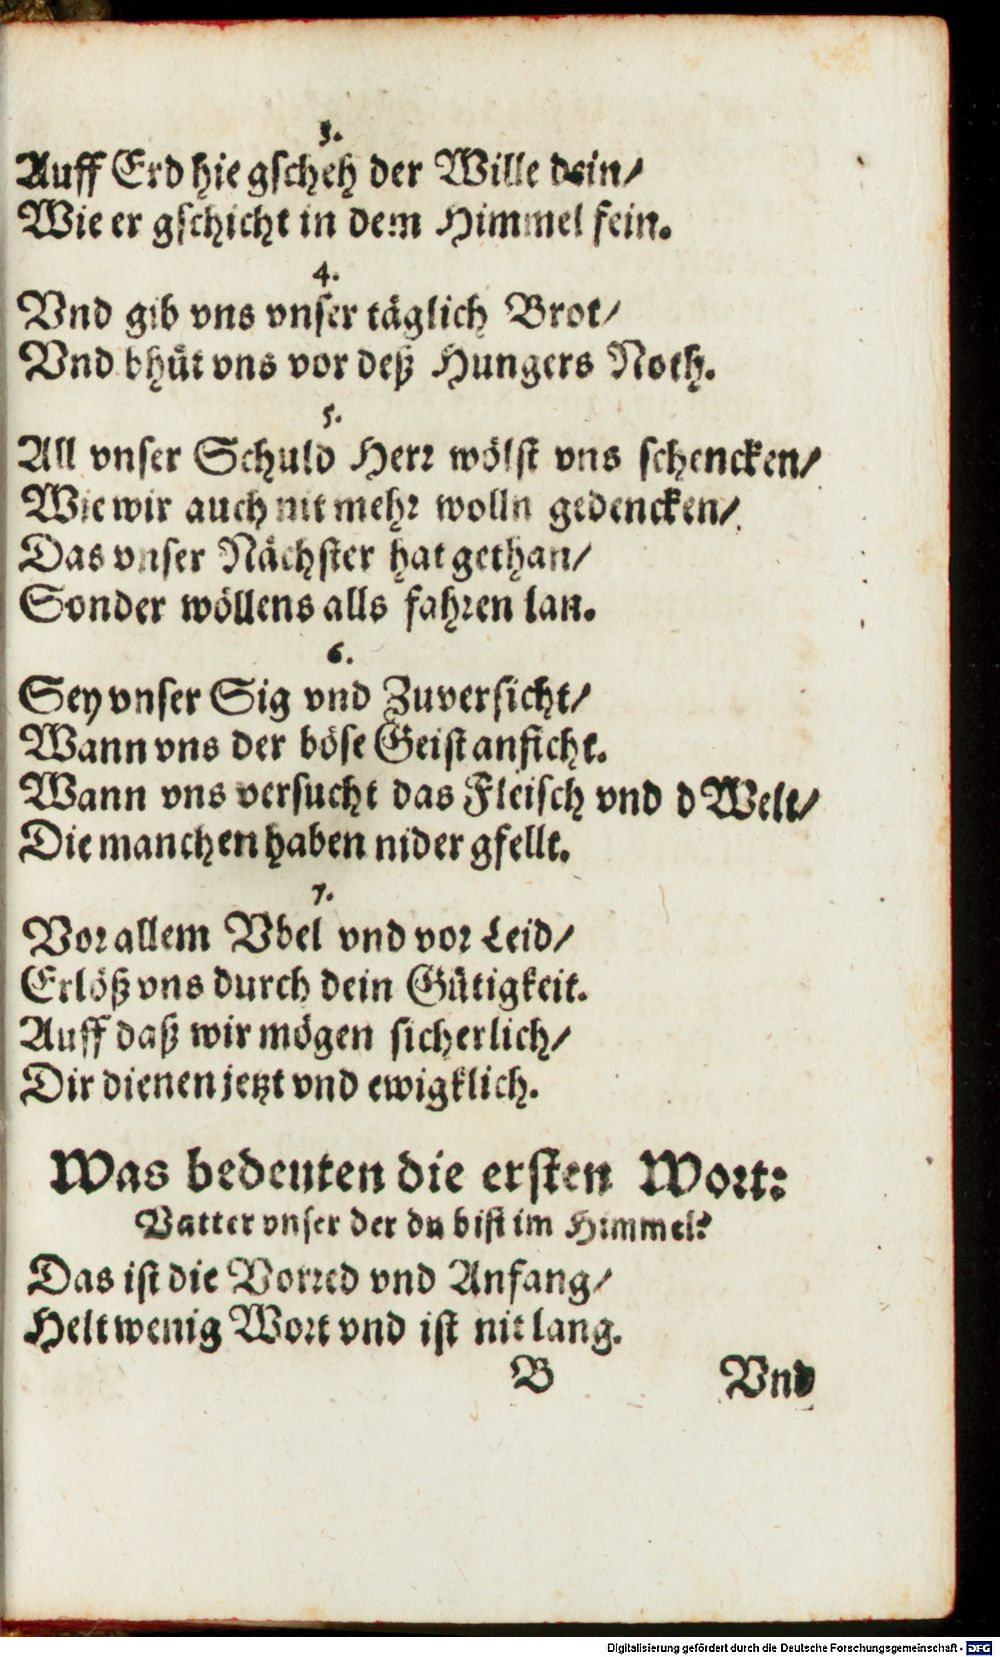 3.
Auff Erd hie gscheh der Wille dein/
Wie er gschicht in dem Himmel fein.
4.
Vnd gib vns vnser täglich Brot/
Vnd bhüt vns vor deß Hungers Noth.
5.
All vnser Schuld Herr wölst vns schencken/
Wie wir auch nit mehr wolln gedencken/
Das vnser Nächster hat gethan/
Sonder wöllens alls fahren lan.
6.
Sey vnser Sig vnd Zuversicht/
Wann vns der böse Geist anficht.
Wann vns versucht das Fleisch vnd d Welt/
Die manchen haben nider gfellt.
7.
Vor allem Vbel vnd vor Leid/
Erlöß vns durch dein Gütigkeit.
Auff daß wir mögen sicherlich/
Dir dienen jetzt vnd ewigklich.
Was bedeuten die ersten Wort:
Vatter vnser der du bist im Himmel?
Das ist die Vorred vnd Anfang/
Helt wenig Wort vnd ist nit lang.
B Vnd
Digitalisierung gefördert durch die Deutsche Forschungsgemeinschaft - DFG